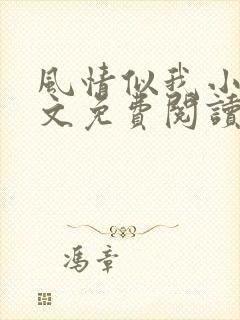 風情似我小
文免費閱讀
馮章